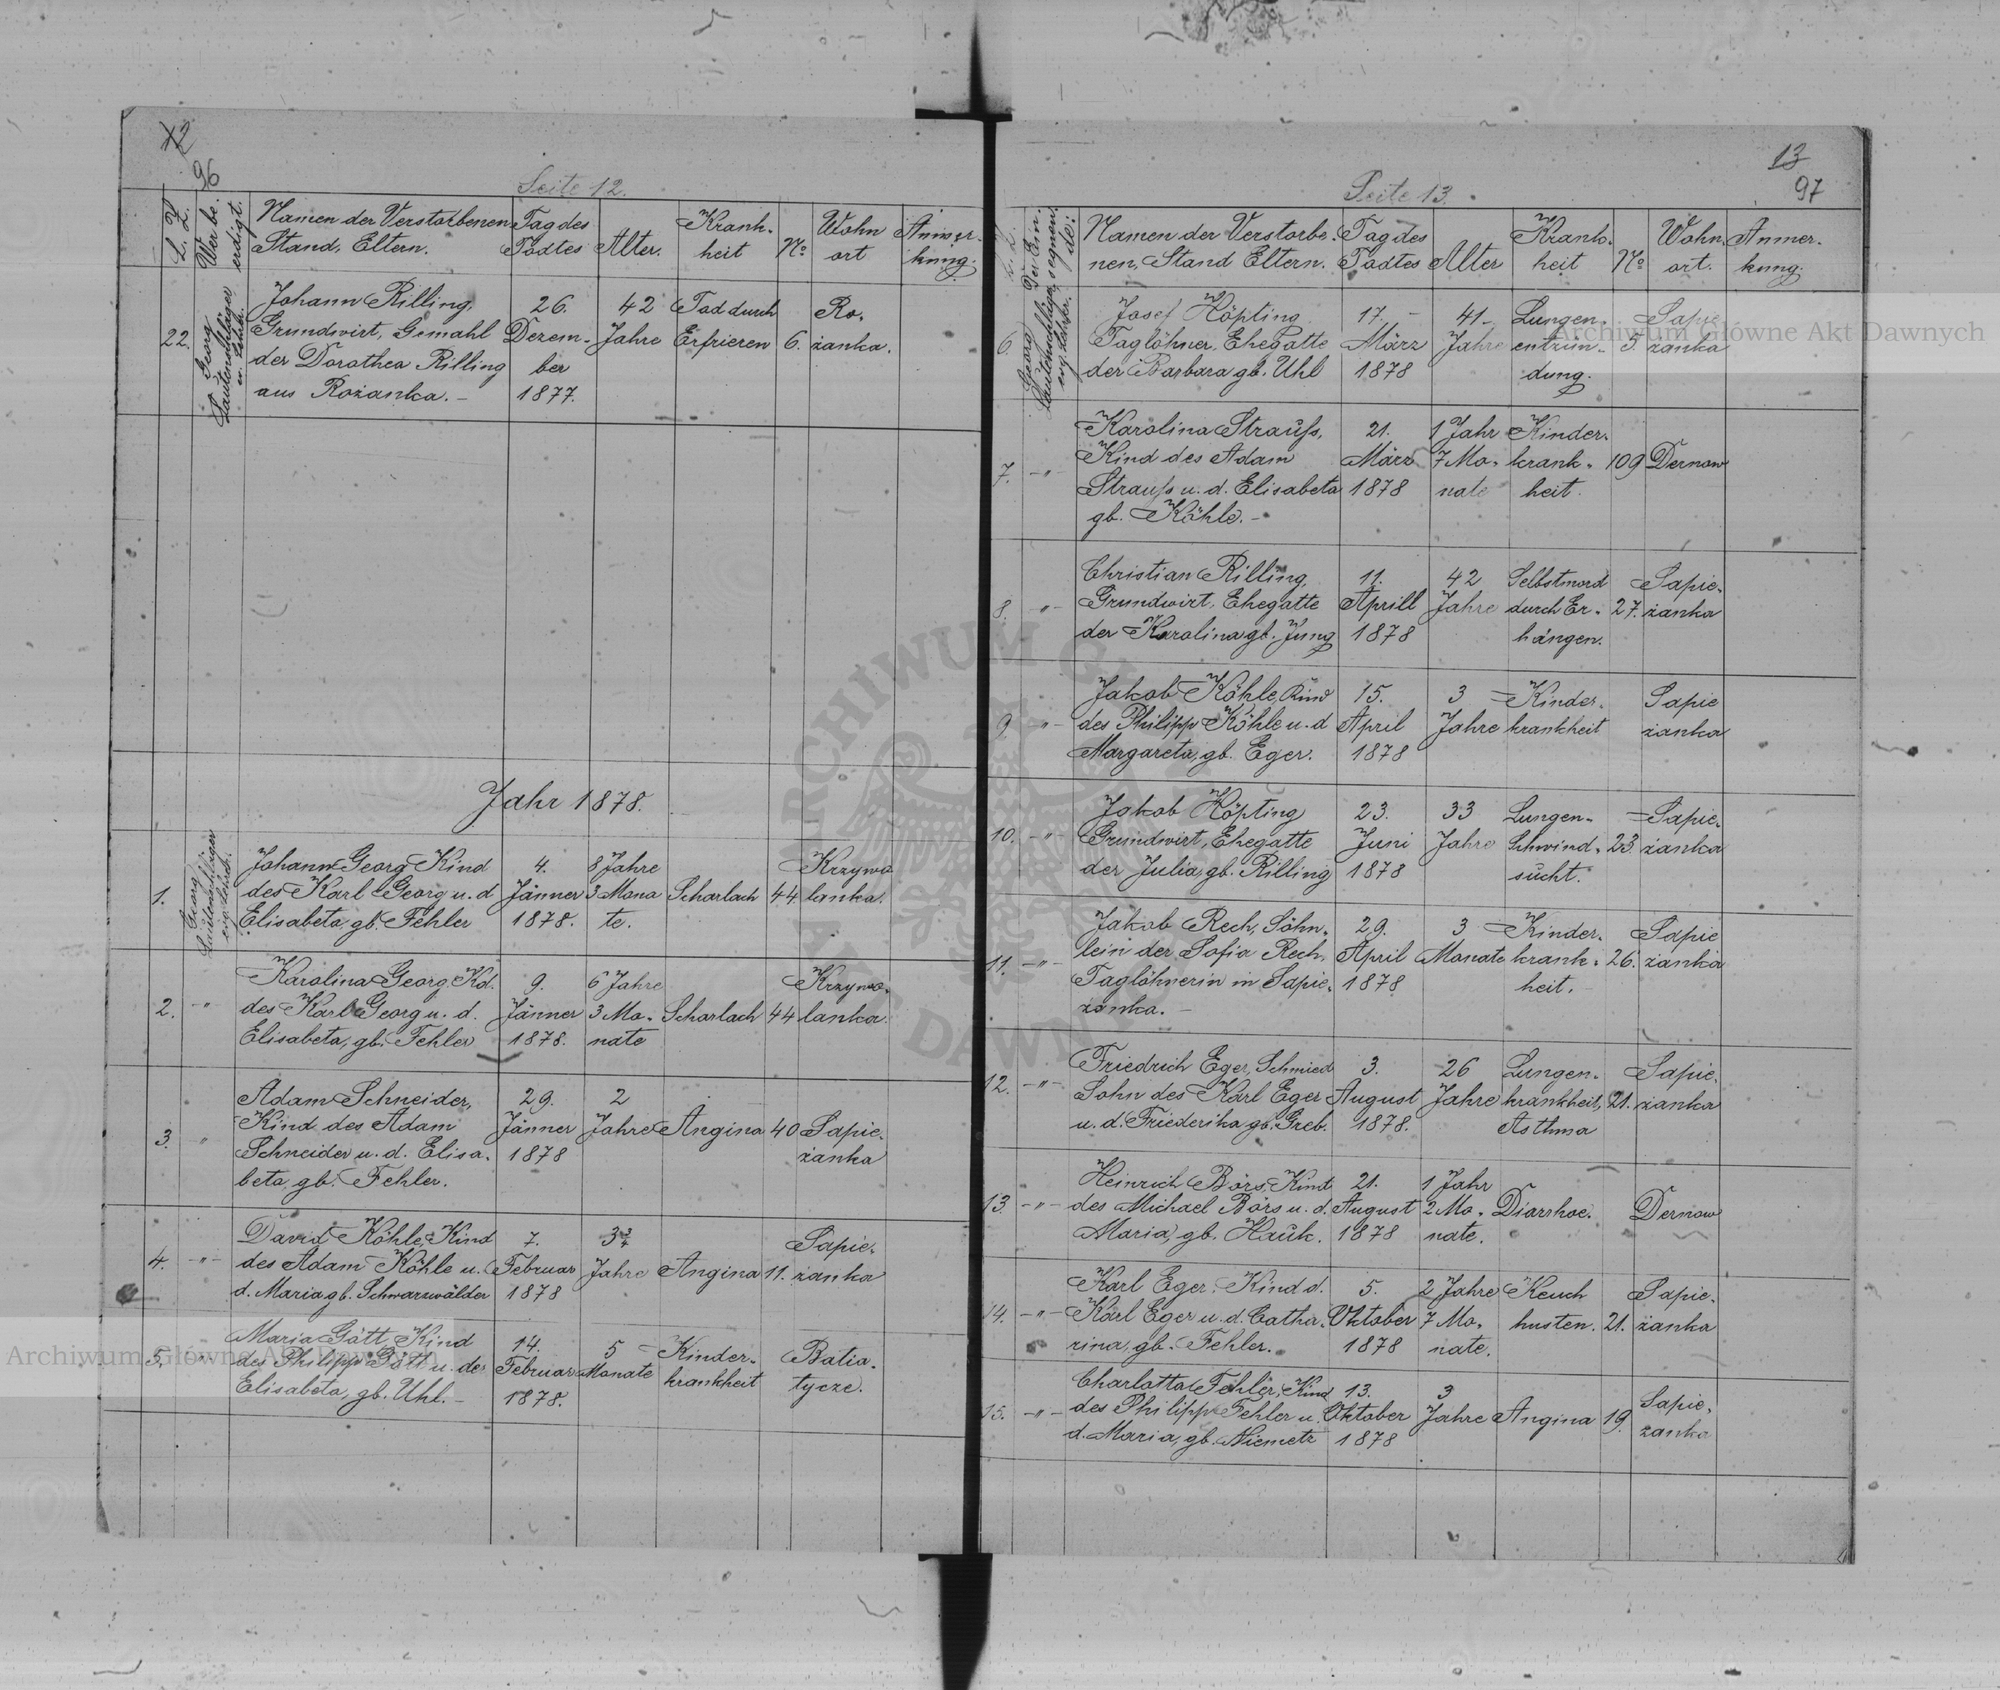 12
96
Seite 12.
L. Z.
Wer be-
erdigt.
Namen der Verstorbenen
Stand, Eltern.
Tag des
Todtes
Alter.
Krank-
heit
No
Wohn
ort
Anmer-
kung.
22.
Georg
Lautenschläger
ev. Lehr.
Johann Rilling,
Grundwirt, Gemahl
der Dorothea Rilling
aus Rożanka. -
26.
Dezem-
ber
1877.
42
Jahre
Tod durch
Erfrieren
6.
Ro-
żanka.
Jahr 1878.
1.
Georg
Lautenschläger
Johann Georg Kind
des Karl Georg u. d
Elisabeta, gb. Fehler
4.
Jänner
1878.
8 Jahre
3 Mona
te.
Scharlach
44
Krzywo
lanka.
2.
-"-
Karolina Georg Kd.
des Karl Georg u. d.
Elisabeta, gb. Fehler
9.
Jänner
1878.
6 Jahre
3 Mo-
nate
Scharlach
44
Krzywo-
lanka.
3.
"
Adam Schneider,
Kind des Adam
Schneider u. d. Elisa-
beta, gb. Fehler.
29.
Jänner
1878
2
Jahre
Angina
40
Sapie-
żanka
4.
-"-
David Köhle Kind
des Adam Köhle u.
d. Maria gb. Schwarzwälder
7.
Februar
1878
3 3/4
Jahre
Angina
11.
Sapie-
żanka
5.
"
Maria Gött Kind
des Philipp Gött u. der
Elisabeta, gb. Uhl. -
14.
Februar
1878.
5
Monate
Kinder-
krankheit
Batia-
tycze.
13
97
Seite 13.
L. Z.
Der Ein-
segnen-
de:
Namen der Verstorbe-
nen, Stand Eltern.
Tag des
Todtes
Alter
Krank-
heit
No
Wohn-
ort.
Anmer-
kung.
6.
Georg
Lautenschläger
evg. Lehrer.
Josef Höpting
Taglöhner, Ehegatte
der Barbara gb. Uhl
17. -
März
1878
41-
Jahre
Lungen-
entzün-
dung.
5.
Sapie
żanka
7.
-"-
Karolina Strauß,
Kind des Adam
Strauß u. d. Elisabeta
gb. Köhle. -
21.
März
1878
1 Jahr
7 Mo-
nate
Kinder-
krank-
heit.
109
Dernow
8.
-"-
Christian Rilling,
Grundwirt, Ehegatte
der Karolina gb. Jung
11.
Aprill
1878
42
Jahre
Selbstmord
durch Er-
hängen.
27.
Sapie-
żanka
9
-"-
Jakob Köhle Kind
des Philipp Köhle u. d
Margareta, gb. Eger.
15.
April
1878
3
Jahre
Kinder-
krankheit
Sapie
żanka
10.
-"-
Jakob Höpting
Grundwirt, Ehegatte
der Julia, gb. Rilling
23.
Juni
1878
33
Jahre
Lungen-
Schwind-
sucht.
23.
Sapie-
żanka
11.
-"-
Jakob Rech, Söhn-
lein der Sofia Rech,
Taglöhnerin in Sapie-
żanka. -
29.
April
1878
3
Monate
Kinder-
krank-
heit.
26.
Sapie
żanka
12.
-"-
Friedrich Eger, Schmied
Sohn des Karl Eger
u. d. Friederika gb. Greb.
3.
August
1878.
26
Jahre
Lungen-
krankheit,
Asthma
21.
Sapie-
żanka
13.
-"-
Heinrich Börs, Kind
des Michael Börs u. d.
Maria, gb. Hauk.
21.
August
1878
1 Jahr
2 Mo-
nate.
Diarrhoe.
Dernow
14.
-"-
Karl Eger. Kind d.
Karl Eger u. d. Catha-
rina, gb. Fehler.
5.
Oktober
1878
2 Jahre
7 Mo-
nate.
Keuch
husten.
21.
Sapie-
żanka
15.
-"-
Charlotta Fehler, Kind
des Philipp Fehler u.
d. Maria, gb. Niemetz
13.
Oktober
1878
3
Jahre
Angina
19.
Sapie-
żanka
Archiwum Główne Akt Dawnych
Archiwum Główne Akt Dawnych